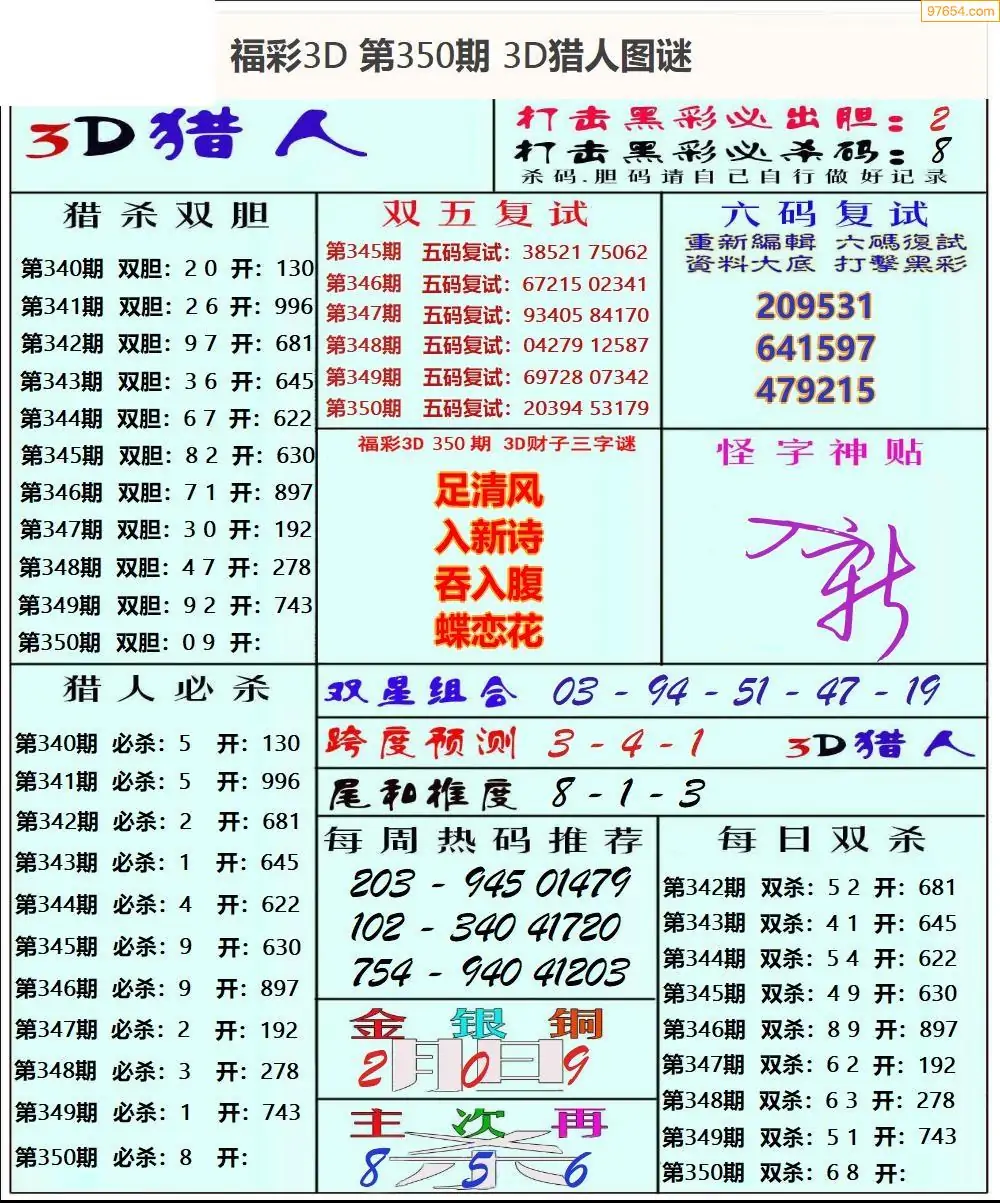 97654.com
福彩3D 第350期 3D猎人图谜
3D猎人
打击黑彩必出胆：2
打击黑彩必杀码：8
杀码.胆码请自己自行做好记录
猎杀双胆
第340期 双胆：2 0 开：130
第341期 双胆：2 6 开：996
第342期 双胆：9 7 开：681
第343期 双胆：3 6 开：645
第344期 双胆：6 7 开：622
第345期 双胆：8 2 开：630
第346期 双胆：7 1 开：897
第347期 双胆：3 0 开：192
第348期 双胆：4 7 开：278
第349期 双胆：9 2 开：743
第350期 双胆：0 9 开：
双五复试
第345期 五码复试：38521 75062
第346期 五码复试：67215 02341
第347期 五码复试：93405 84170
第348期 五码复试：04279 12587
第349期 五码复试：69728 07342
第350期 五码复试：20394 53179
六码复试
重新編輯 六碼復試
資料大底 打擊黑彩
209531
641597
479215
福彩3D 350 期 3D财子三字谜
足清风
入新诗
吞入腹
蝶恋花
怪字神贴
入新
猎人必杀
第340期 必杀：5 开：130
第341期 必杀：5 开：996
第342期 必杀：2 开：681
第343期 必杀：1 开：645
第344期 必杀：4 开：622
第345期 必杀：9 开：630
第346期 必杀：9 开：897
第347期 必杀：2 开：192
第348期 必杀：3 开：278
第349期 必杀：1 开：743
第350期 必杀：8 开：
双星组合 03 - 94 - 51 - 47 - 19
跨度预测 3 - 4 - 1 3D猎人
尾和推度 8 - 1 - 3
每周热码推荐
203 - 945 01479
102 - 340 41720
754 - 940 41203
金 银 铜
胆
2 0 9
主 次 再
杀
8 5 6
每日双杀
第342期 双杀：5 2 开：681
第343期 双杀：4 1 开：645
第344期 双杀：5 4 开：622
第345期 双杀：4 9 开：630
第346期 双杀：8 9 开：897
第347期 双杀：6 2 开：192
第348期 双杀：6 3 开：278
第349期 双杀：5 1 开：743
第350期 双杀：6 8 开：